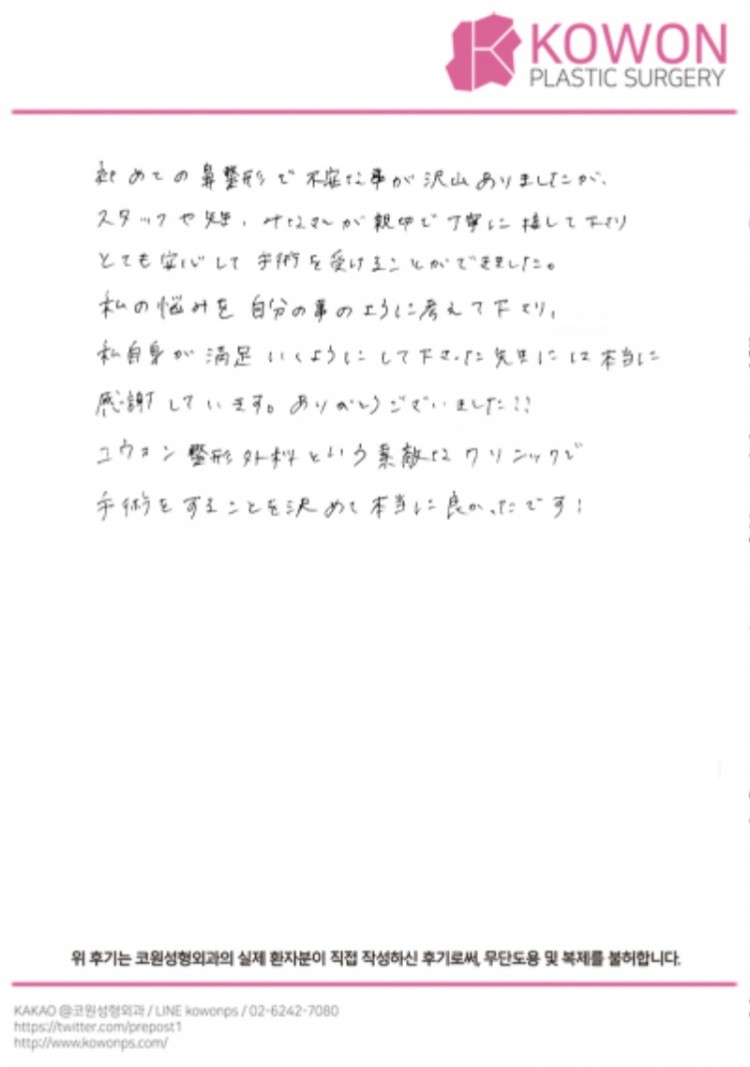 KOWON
PLASTIC SURGERY
初めての鼻整形で不安な事が沢山ありましたが、
スタッフや先生、みなさんが親切で丁寧に接して下さり
とても安心して手術を受けることができました。
私の悩みを自分の事のように考えて下さり、
私自身が満足いくようにして下さった先生には本当に
感謝しています。ありがとうございました!!
コウォン整形外科という素敵なクリニックで
手術をすることを決めて本当に良かったです!
위 후기는 코원성형외과의 실제 환자분이 직접 작성하신 후기로써, 무단도용 및 복제를 불허합니다.
KAKAO @코원성형외과 / LINE kowonps / 02-6242-7080
https://twitter.com/prepost1
http://www.kowonps.com/